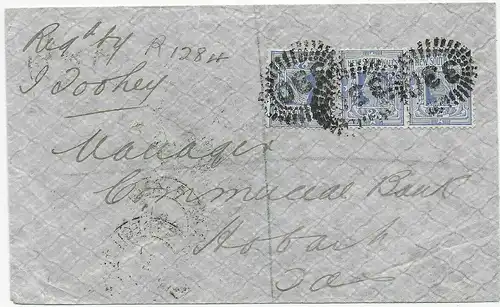 Regd by R 128
J Toohey
Manager
Commercial Bank
Hobart
Tas